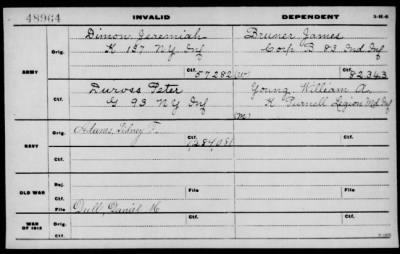 48964 INVALID DEPENDENT 3-H-6
Dimon, Jeremiah Bruner, James
Orig. K 157 NY Inf Corp B 83 Ind Inf
ARMY Ctf. 57282 (W) Ctf. 82343
Duross Peter Young, William A.
Ctf. G 93 NY Inf K Purnell Legion Md Inf
(M)
Orig. Adams, Sidney F. Ctf.
NAVY 1,284,081
Ctf.
OLD WAR Rej. File Ctf. File
Ctf.
WAR OF 1812 File Dull, Daniel H Ctf. Ctf.
Orig.